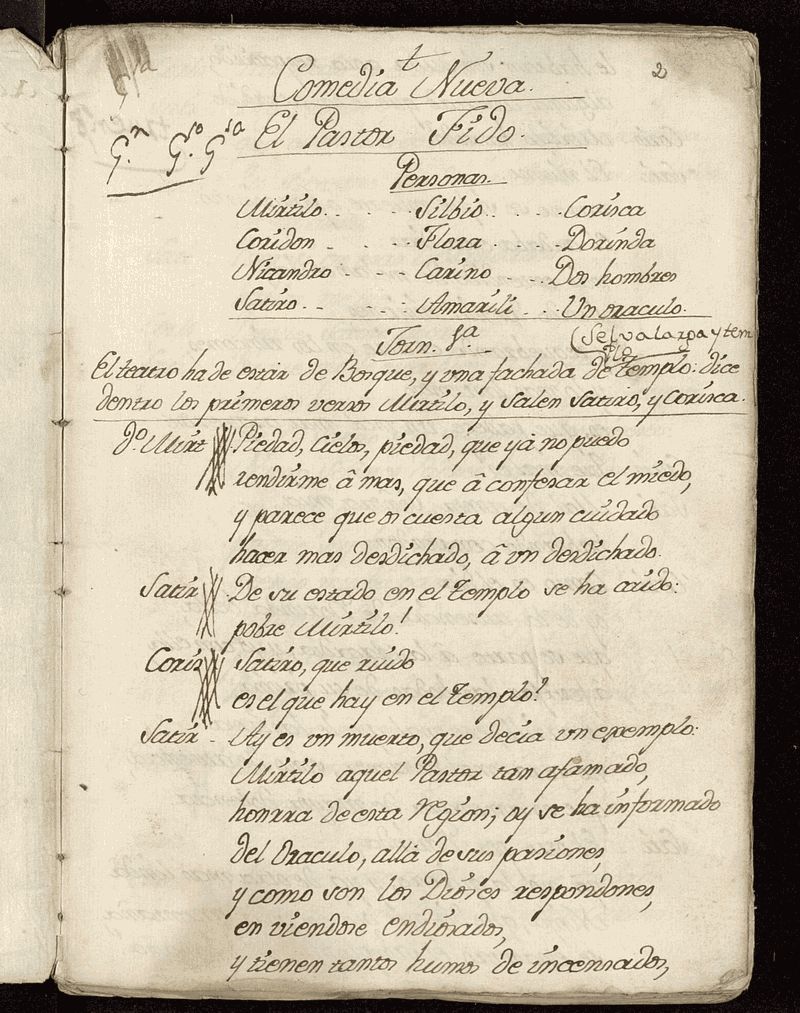 2
Comedia Nueva.
El Pastor Fido.
Personas.
Mirtilo . . . . Silbio . . . . Corisca
Coridon . . . . Flora . . . . Dorinda
Nicandro . . . Carino . . . Dos hombres
Satiro . . . . Amarili . . Un oraculo.
Jorn. 1ª
(Selva larga y tem
plo
El teatro ha de estàr de Bosque, y una fachada de templo: dice
dentro los primeros versos Mirtilo, y salen Satiro, y Corisca.
dº Mirt Piedad, Cielos, piedad, que yà no puedo
rendirme â mas, que â confesar el miedo,
y parece que os cuesta algun cuidado
hacer mas desdichado, â un desdichado.
Satir De su estado en el templo se ha caido:
pobre Mirtilo!
Coris Satiro, que ruido
es el que hay en el templo?
Satir - Ay es un muerto, que decia un exemplo:
Mirtilo aquel Pastor tan afamado,
honrra de esta region; oy se ha informado
del Oraculo, allà de sus pasiones,
y como son los Dioses respondones,
en viendose endiosados,
y tienen tantos humos de incensados,